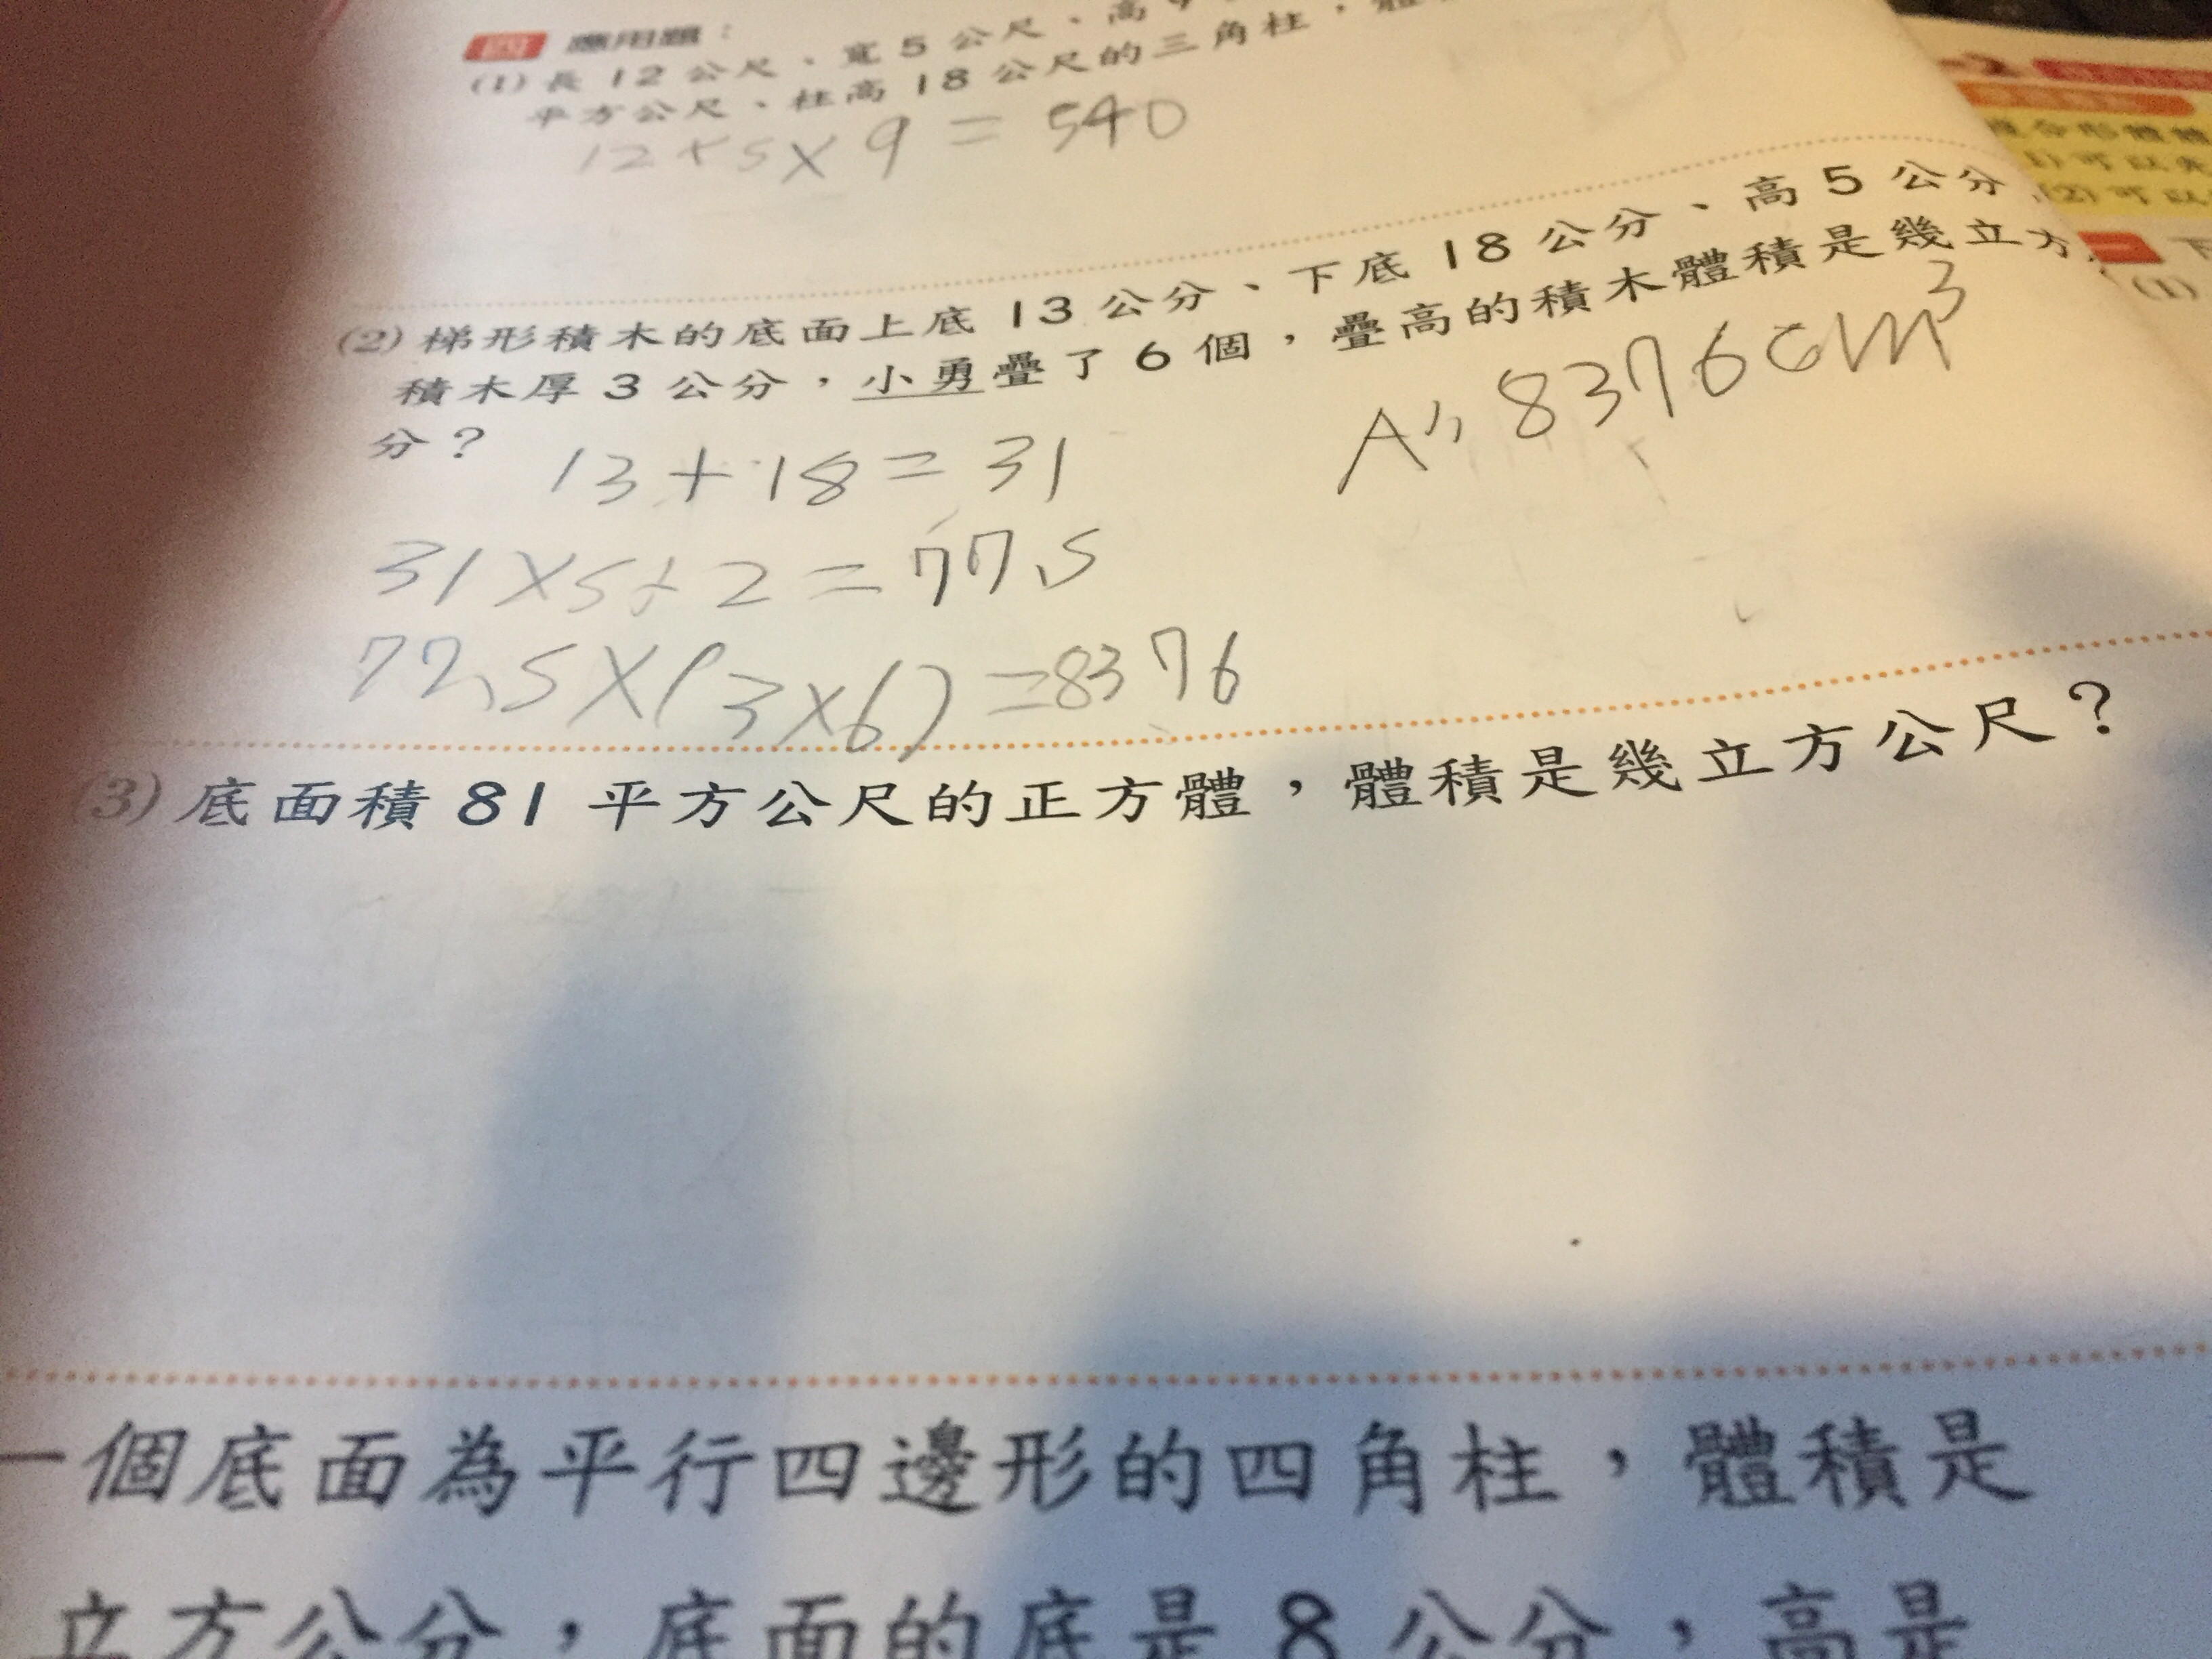 四 應用題：
(1) 長 12 公尺、寬 5 公尺、高 9
平方公尺、柱高 18 公尺的三角柱，體
12×5×9=540
(2) 梯形積木的底面上底 13 公分、下底 18 公分、高 5 公分
積木厚 3 公分，小勇疊了 6 個，疊高的積木體積是幾立方
分？
A:, 8376cm³
13+18=31
31×5÷2=77.5
77.5×(3×6)=8376
(3) 底面積 81 平方公尺的正方體，體積是幾立方公尺？
一個底面為平行四邊形的四角柱，體積是
立方公分，底面的底是 8 公分，高是
複合形體體
(1) 可以先
(2) 可以
二 下
(1)